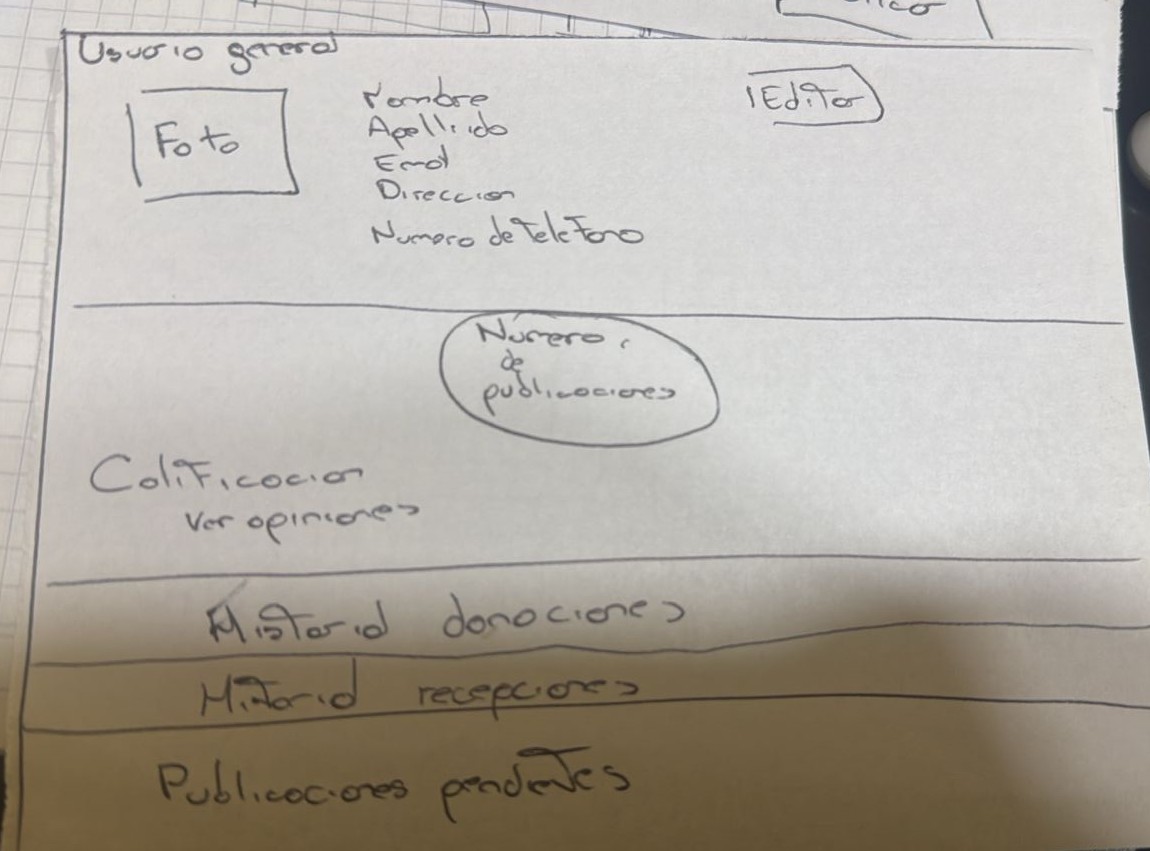 Usuario general
Foto
Nombre
Apellido
Email
Direccion
Numero de telefono
Editar
Número
de
publicaciones
Calificacion
Ver opiniones
Historial donaciones
Historial recepciones
Publicaciones pendientes